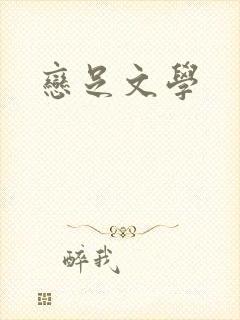 戀足文學
醉我